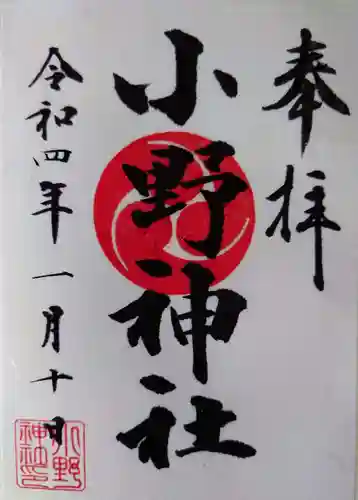 奉拝
小野神社
令和四年一月十日
小野神社印